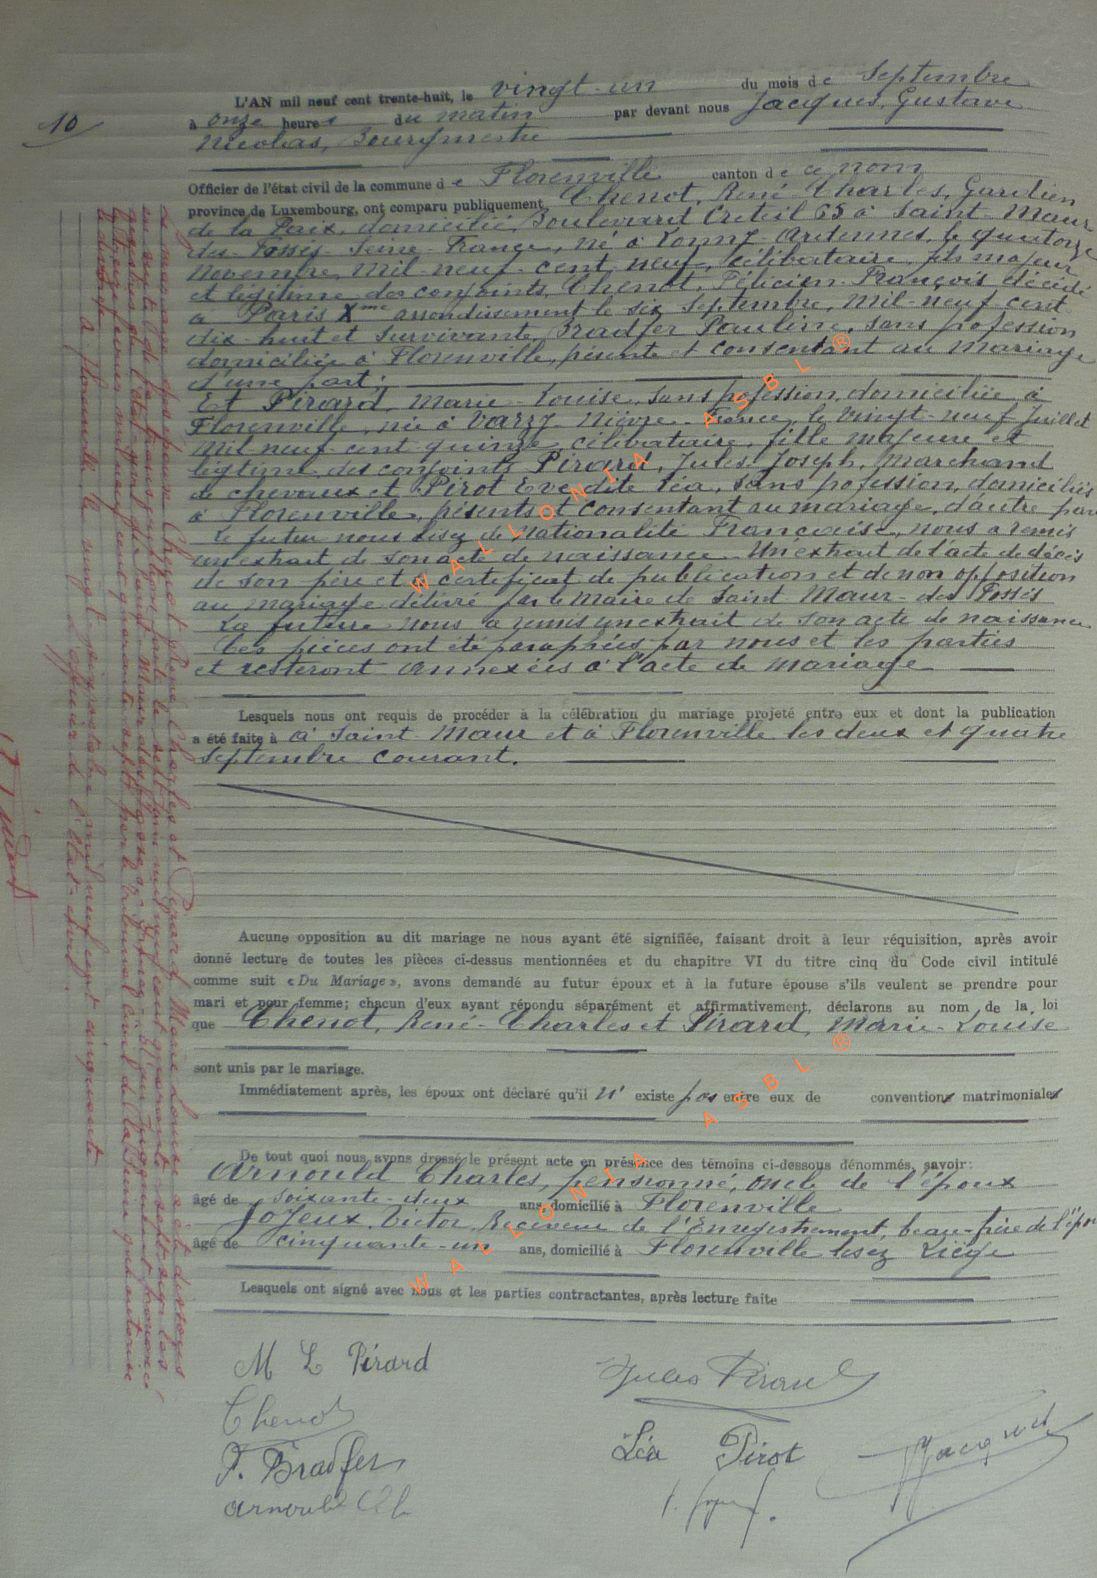 L'AN mil neuf cent trente-huit, le vingt-un du mois de Septembre
10
à onze heures du matin par devant nous Jacques, Gustave
Nicolas, Bourgmestre
Officier de l'état civil de la commune de Florenville canton de ce nom
province de Luxembourg, ont comparu publiquement Thenot, René Charles, Gardien
de la Paix, domicilié Boulevard Creteil 65 à Saint-Maur
des-Fossés-Seine-France, né à Lonny-Ardennes, le quatorze
Novembre mil-neuf-cent neuf, célibataire, fils majeur
et légitime des conjoints, Thenot, Félicien François, décédé
à Paris Xme arrondissement le six Septembre, mil-neuf cent
dix-huit et survivante, Bradfer Pauline, sans profession
domiciliée à Florenville, présente et consentant au mariage
d'une part;
Et Pirard, Marie-Louise, sans profession, domiciliée à
Florenville, née à Varzy Nièvre-France, le vingt-neuf Juillet
mil neuf cent quinze, célibataire, fille majeure et
légitime des conjoints Pirard, Jules-Joseph, Marchand
de chevaux et Pirot Eve dite Léa, sans profession, domiciliés
à Florenville, présents et consentant au mariage, d'autre part
Le futur nous lisez de Nationalité Française, nous a remis
un extrait de son acte de naissance. Un extrait de l'acte de décès
de son père et le certificat de publication et de non opposition
au mariage délivré par le Maire de Saint Maur-des Fossés
La future nous a remis un extrait de son acte de naissance
Ces pièces ont été paraphées par nous et les parties
et resteront annexées à l'acte de mariage
Lesquels nous ont requis de procéder à la célébration du mariage projeté entre eux et dont la publication
a été faite à à Saint-Maur et à Florenville les deux et quatre
Septembre courant.
Aucune opposition au dit mariage ne nous ayant été signifiée, faisant droit à leur réquisition, après avoir
donné lecture de toutes les pièces ci-dessus mentionnées et du chapitre VI du titre cinq du Code civil intitulé
comme suit « Du Mariage », avons demandé au futur époux et à la future épouse s'ils veulent se prendre pour
mari et pour femme; chacun d'eux ayant répondu séparément et affirmativement, déclarons au nom de la loi
que Thenot, René-Charles et Pirard, Marie-Louise
sont unis par le mariage.
Immédiatement après, les époux ont déclaré qu'il n' existe pas entre eux de conventions matrimoniales
De tout quoi nous avons dressé le présent acte en présence des témoins ci-dessous dénommés, savoir:
Arnould Charles, pensionné, oncle de l'époux
âgé de soixante-deux ans, domicilié à Florenville
Joyeux, Victor, Receveur de l'Enregistrement, beau-frère de l'époux
âgé de cinquante-un ans, domicilié à Florenville lisez Liège
Lesquels ont signé avec nous et les parties contractantes, après lecture faite
M L Pirard
Jules Pirard
Thenot
Léa Pirot
Jacques
P. Bradfer
Arnould Ch
Le mariage des époux Thenot René Charles et Pirard Marie Louise a été dissous
à Florenville le vingt
mil neuf cent cinquante
L'officier de l'Etat-Civil.
WALLONIA ASBL ®
WALLONIA ASBL ®